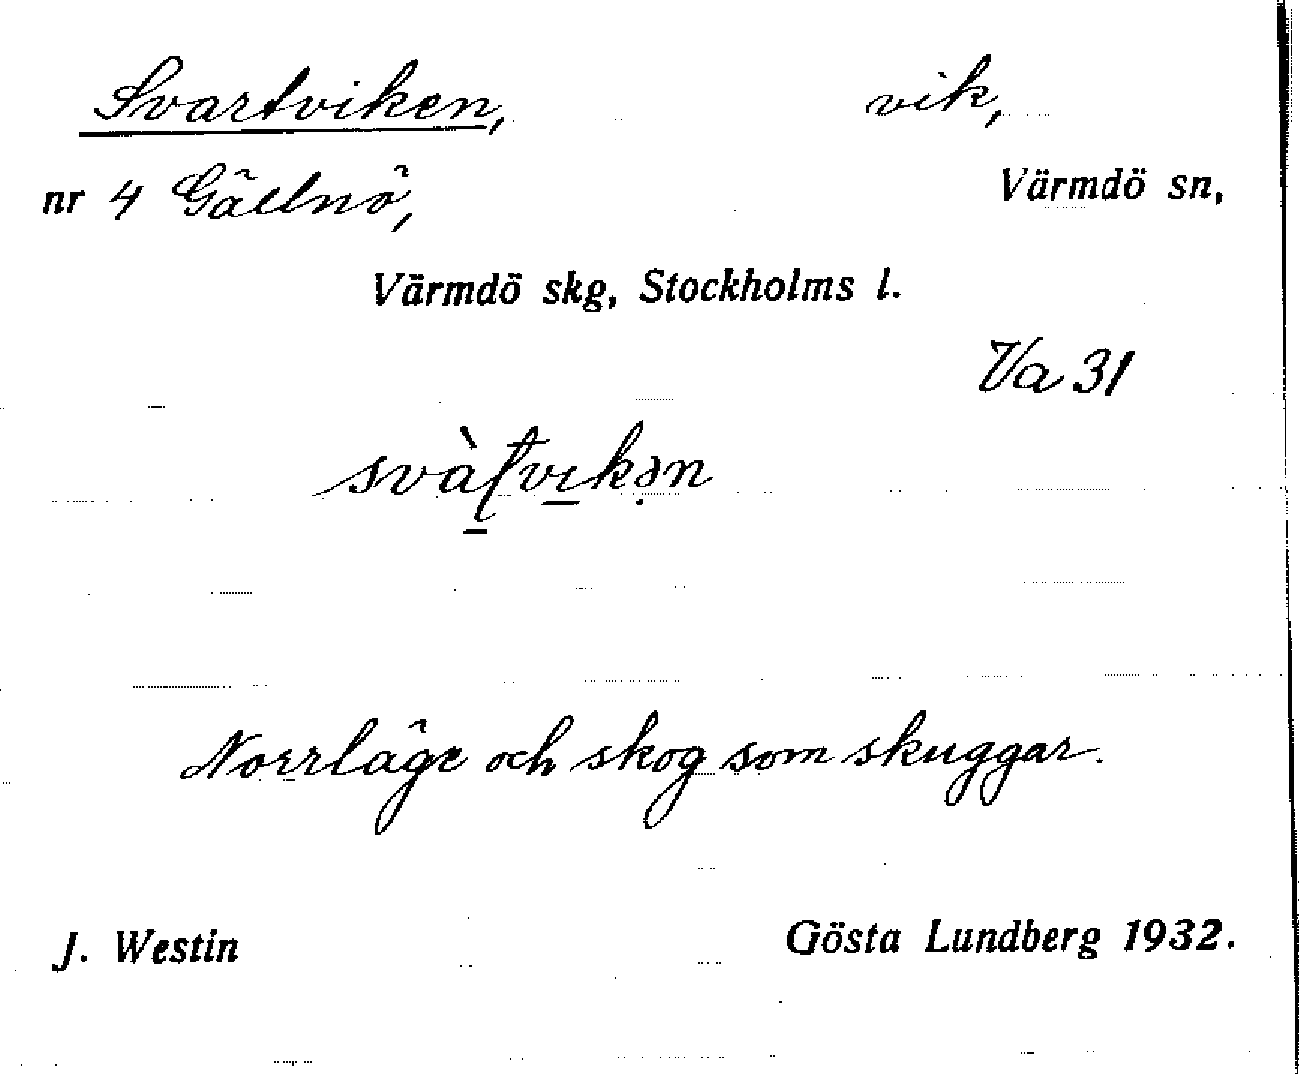 Svartviken, vik,
nr 4 Gällnö, Värmdö sn,
Värmdö skg, Stockholms l.
Va 31
Norrläge och skog som skuggar.
J. Westin Gösta Lundberg 1932.